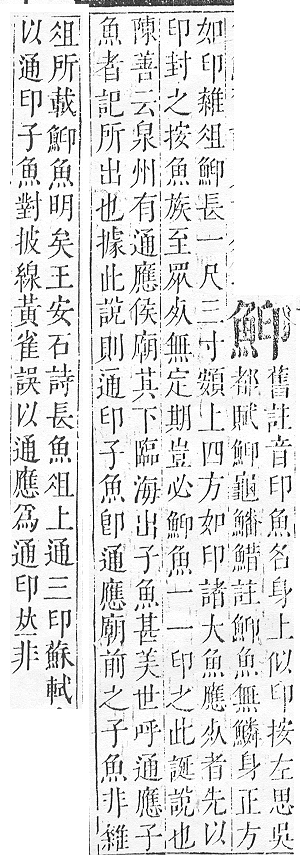 䲟
舊註音印魚名身上似印按左思吳
都賦䲟龜鱕䱜註䲟魚無鱗身正方
如印雜俎䲟長一尺三寸額上四方如印諸大魚應死者先以
印封之按魚族至眾死無定期豈必䲟魚一一印之此誕說也
陳善云泉州有通應侯廟其下臨海出子魚甚美世呼通應子
魚者記所出也據此說則通印子魚卽通應廟前之子魚非雜
俎所載䲟魚明矣王安石詩長魚俎上通三印蘇軾
以通印子魚對披線黃雀誤以通應爲通印𠀤非